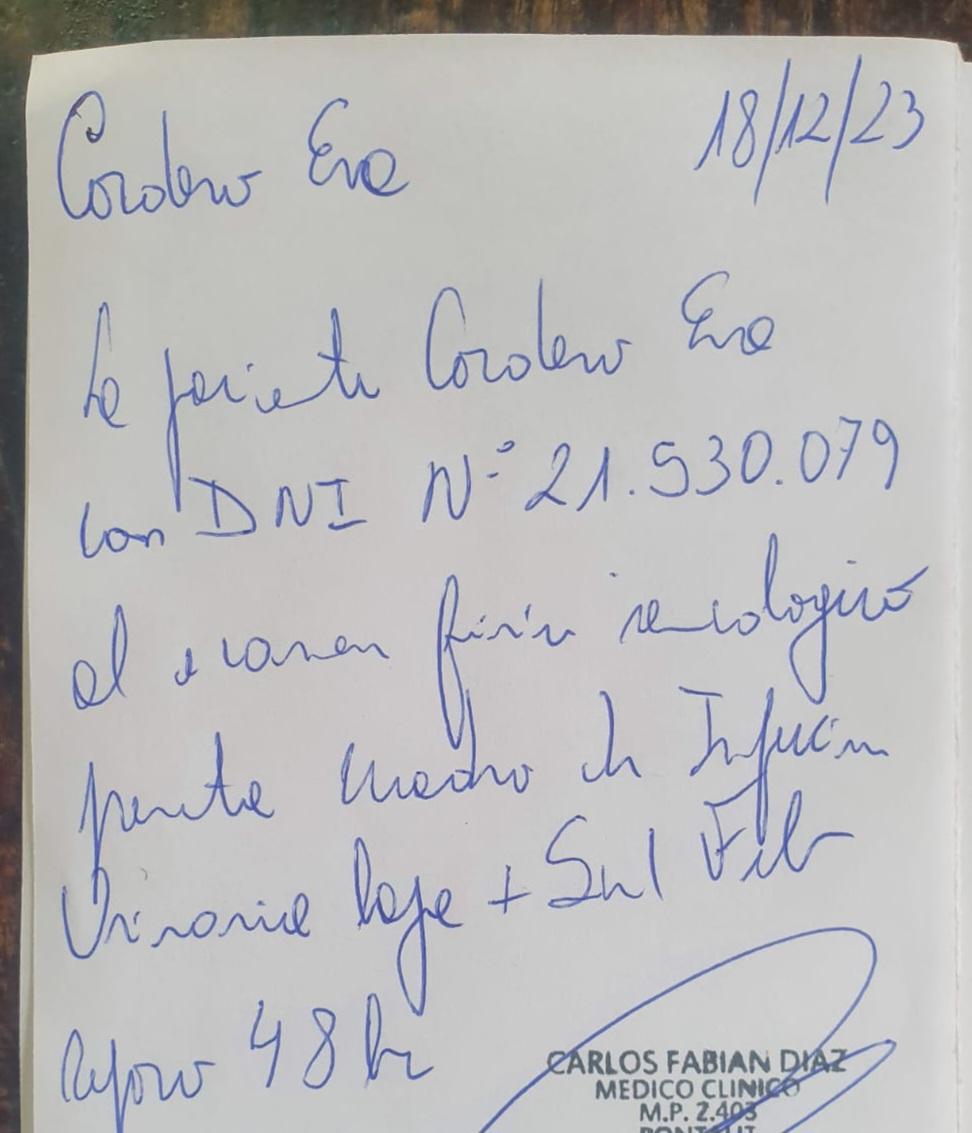 Cordero Eva 18/12/23
La paciente Cordero Eva
con DNI Nº 21.530.079
al examen físico semiologico
presenta cuadro de Infección
Urinaria baja + Sme Feb
Reposo 48 hs
CARLOS FABIAN DIAZ
MEDICO CLINICO
M.P. 2.403